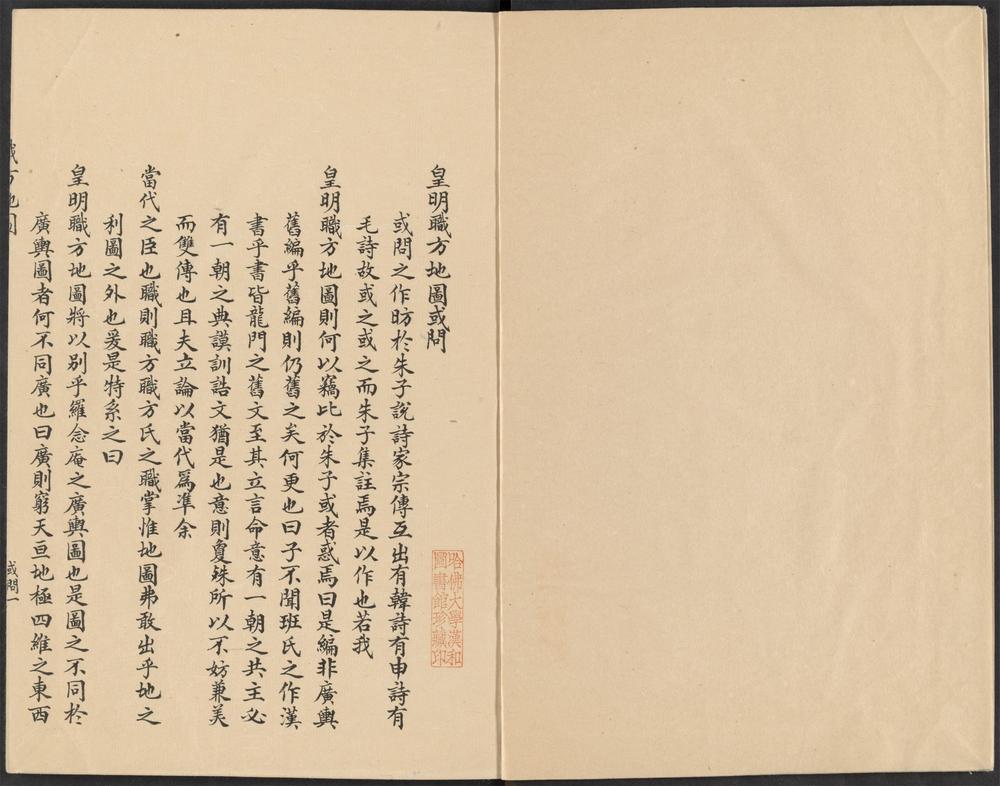 皇明職方地圖或問
或問之作昉於朱子說詩家宗傳互出有韓詩有申詩有
毛詩故或之或之而朱子集註焉是以作也若我
皇明職方地圖則何以竊比於朱子或者惑焉曰是編非廣輿
舊編乎舊編則仍舊之矣何更也曰子不聞班氏之作漢
書乎書皆龍門之舊文至其立言命意有一朝之共主必
有一朝之典謨訓誥文猶是也意則敻殊所以不妨兼美
而雙傳也且夫立論以當代爲準余
當代之臣也職則職方職方氏之職掌惟地圖弗敢出乎地之
利圖之外也爰是特系之曰
皇明職方地圖將以別乎羅念庵之廣輿圖也是圖之不同於
廣輿圖者何不同廣也曰廣則窮天亘地極四維之東西
職方地圖
或問一
哈佛大學漢和
圖書館珍藏印